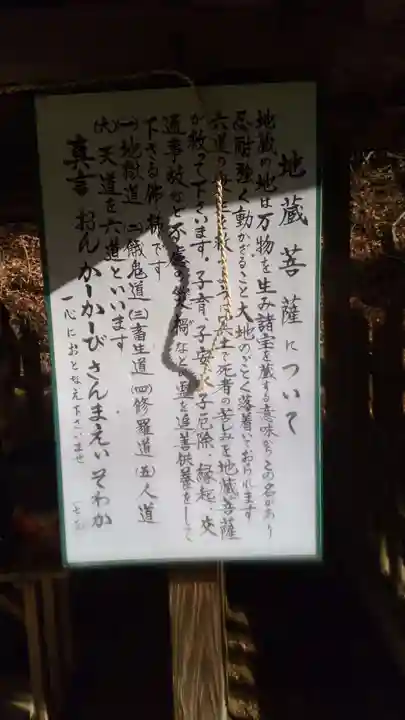 地蔵菩薩について
地蔵の地は万物を生み諸宝を蔵する意味からこの名があり
忍耐強く動かざること大地のごとく落着いておられます
六道の 救 冥土で死者の苦しみを地蔵菩薩
が救って下さいます。子育、子安、水子厄除、縁起、交
通事故など不慮の災禍など 霊を追善供養をして
下さる佛様です
(一)地獄道(二)餓鬼道(三)畜生道(四)修羅道(五)人道
(六)天道を六道といいます
真言 おん かーかーび さんまえい そわか
一心におとなえ下さいませ